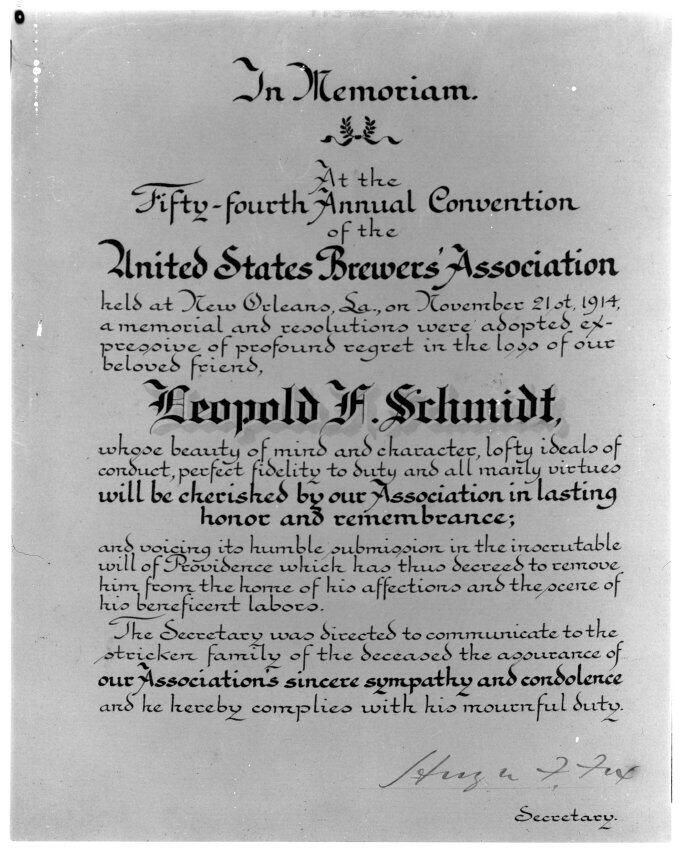 In Memoriam.
At the
Fifty-fourth Annual Convention
of the
United States Brewers' Association
held at New Orleans, La., on November 21st, 1914,
a memorial and resolutions were adopted ex-
pressive of profound regret in the loss of our
beloved friend,
Leopold F. Schmidt,
whose beauty of mind and character, lofty ideals of
conduct, perfect fidelity to duty and all manly virtues
will be cherished by our Association in lasting
honor and remembrance;
and voicing its humble submission in the inscrutable
will of Providence which has thus decreed to remove
him from the home of his affections and the scene of
his beneficent labors.
The Secretary was directed to communicate to the
stricken family of the deceased the assurance of
our Association's sincere sympathy and condolence
and he hereby complies with his mournful duty.
Hugh F. Fox
Secretary.